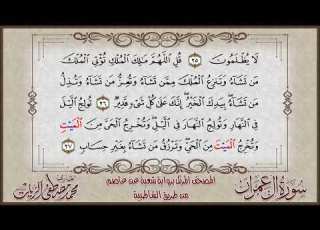 لَا يُظْلَمُونَ ٢٥ قُلِ اللَّهُمَّ مَالِكَ الْمُلْكِ تُؤْتِي الْمُلْكَ
مَن تَشَاءُ وَتَنزِعُ الْمُلْكَ مِمَّن تَشَاءُ وَتُعِزُّ مَن تَشَاءُ وَتُذِلُّ
مَن تَشَاءُ بِيَدِكَ الْخَيْرُ إِنَّكَ عَلَىٰ كُلِّ شَيْءٍ قَدِيرٌ ٢٦ تُولِجُ الَّيْلَ
فِي النَّهَارِ وَتُولِجُ النَّهَارَ فِي الَّيْلِ وَتُخْرِجُ الْحَيَّ مِنَ الْمَيْتِ
وَتُخْرِجُ الْمَيْتَ مِنَ الْحَيِّ وَتَرْزُقُ مَن تَشَاءُ بِغَيْرِ حِسَابٍ ٢٧
المصحف المرتل برواية شعبة عن عاصم
من طريق الشاطبية
سورة آل عمران
محمد مصطفى الزيات